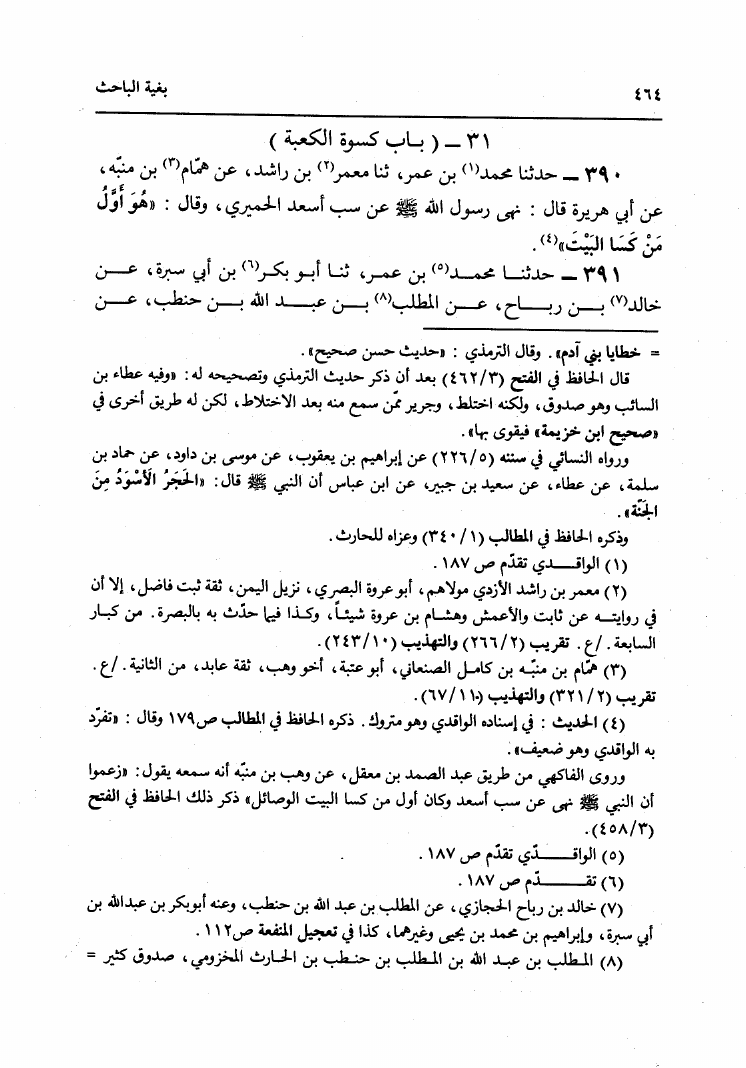 ٤٦٤
بغية الباحث
٣١ ــ ( باب كسوة الكعبة )
٣٩٠ ــ حدثنا محمد(١) بن عمر، ثنا معمر(٢) بن راشد، عن همّام(٣) بن منبّه،
عن أبي هريرة قال : نهى رسول الله ﷺ عن سب أسعد الحميري، وقال : «هُوَ أَوَّلُ
مَنْ كَسَا البَيْتَ»(٤).
٣٩١ ــ حدثنــا محمــد(٥) بن عمــر، ثنــا أبــو بكــر(٦) بن أبي سبرة، عــن
خالد(٧) بــن ربــاح، عــن المطلب(٨) بــن عبــد الله بــن حنطب، عــن
= خطايا بني آدم». وقال الترمذي : «حديث حسن صحيح».
قال الحافظ في الفتح (٤٦٢/٣) بعد أن ذكر حديث الترمذي وتصحيحه له: «وفيه عطاء بن
السائب وهو صدوق، ولكنه اختلط، وجرير ممّن سمع منه بعد الاختلاط، لكن له طريق أخرى في
«صحيح ابن خزيمة» فيقوى بها».
ورواه النسائي في سننه (٢٢٦/٥) عن إبراهيم بن يعقوب، عن موسى بن داود، عن حماد بن
سلمة، عن عطاء، عن سعيد بن جبير، عن ابن عباس أن النبي ﷺ قال: «الحَجَرُ الأَسْوَدُ مِنَ
الجَنَّة».
وذكره الحافظ في المطالب (٣٤٠/١) وعزاه للحارث.
(١) الواقــدي تقدّم ص ١٨٧.
(٢) معمر بن راشد الأزدي مولاهم، أبو عروة البصري، نزيل اليمن، ثقة ثبت فاضل، إلا أن
في روايتــه عن ثابت والأعمش وهشـام بن عروة شيئـاً، وكـذا فيما حدّث به بالبصرة. من كبـار
السابعة. /ع. تقريب (٢٦٦/٢) والتهذيب (٢٤٣/١٠).
(٣) همّام بن منبّـه بن كامـل الصنعاني، أبو عتبة، أخو وهب، ثقة عابد، من الثانية. /ع.
تقريب (٣٢١/٢) والتهذيب (٦٧/١١٠).
(٤) الحديث : في إسناده الواقدي وهو متروك. ذكره الحافظ في المطالب ص١٧٩ وقال : «تفرّد
به الواقدي وهو ضعيف».
وروى الفاكهي من طريق عبد الصمد بن معقل، عن وهب بن منبّه أنه سمعه يقول: «زعموا
أن النبي ﷺ نهى عن سب أسعد وكان أول من كسا البيت الوصائل» ذكر ذلك الحافظ في الفتح
(٤٥٨/٣).
(٥) الواقــــدّي تقدّم ص ١٨٧.
(٦) تقــــدّم ص ١٨٧.
(٧) خالد بن رباح الحجازي، عن المطلب بن عبد الله بن حنطب، وعنه أبوبكر بن عبدالله بن
أبي سبرة، وإبراهيم بن محمد بن يحيى وغيرهما، كذا في تعجيل المنفعة ص١١٢.
(٨) المـطلب بن عبـد الله بن المـطلب بن حنـطب بن الحـارث المخزومي، صدوق كثير =